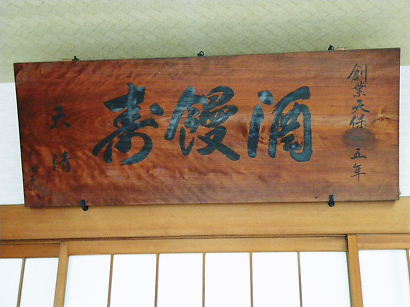 創業天保五年
酒饅寿
天清